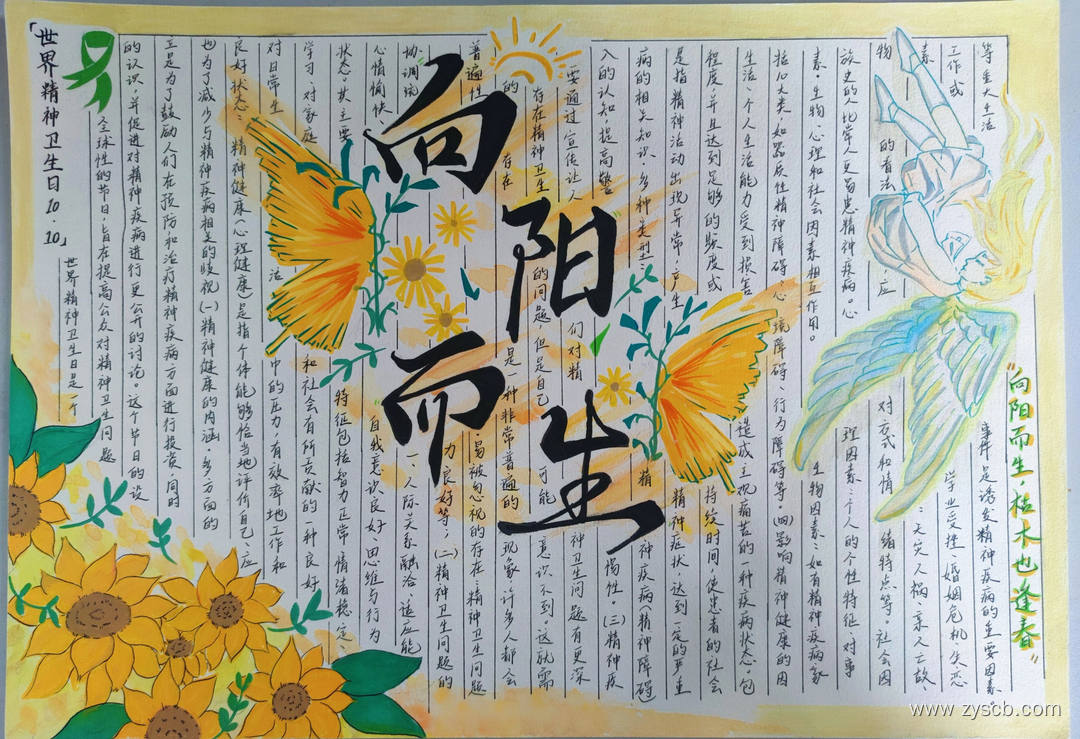 「世界精神卫生日10.10」
世界精神卫生日是一个
全球性的节日,旨在提高公众对精神卫生问题
的认识,并促进对精神疾病进行更公开的讨论。这个节日的设
立是为了鼓励人们在预防和治疗精神疾病方面进行投资,同时
也为了减少与精神疾病相关的歧视(一)精神健康的内涵:多方面的
良好状态:精神健康(心理健康)是指个体能够恰当地评价自己、应
对日常生活中的压力,有效率地工作和
学习,对家庭和社会有所贡献的一种良好
状态。其主要特征包括智力正常、情绪稳定、
心情愉快、自我意识良好、思维与行为
协调统一、人际关系融洽、适应能
力良好等,(二)精神卫生问题的
普遍性易被忽视的存在:精神卫生问题
的存在是一种非常普遍的现象,许多人都会
存在精神卫生的问题,但是自己可能意识不到。这就需
要通过宣传让人们对精神卫生问题有更深
入的认知,提高警惕性。(三)精神疾
病的相关知识:多种类型:精神疾病(精神障碍)
是指精神活动出现异常,产生精神症状,达到一定的严重
程度,并且达到足够的频度或持续时间,使患者的社会
生活、个人生活能力受到损害造成主观痛苦的一种疾病状态。包
括10大类,如器质性精神障碍、心境障碍、行为障碍等。(四)影响精神健康的因
素:生物、心理和社会因素相互作用。生物因素:如有精神疾病家
族史的人比常人更易患精神疾病。心理因素:个人的个性特征、对事
物的看法、应对方式和情绪特点等。社会因
素:天灾人祸、亲人亡故、
工作或学业受挫、婚姻危机、失恋
等重大生活事件是诱发精神疾病的重要因素。
向阳而生
"向阳而生,枯木也逢春"
www.zyscb.com